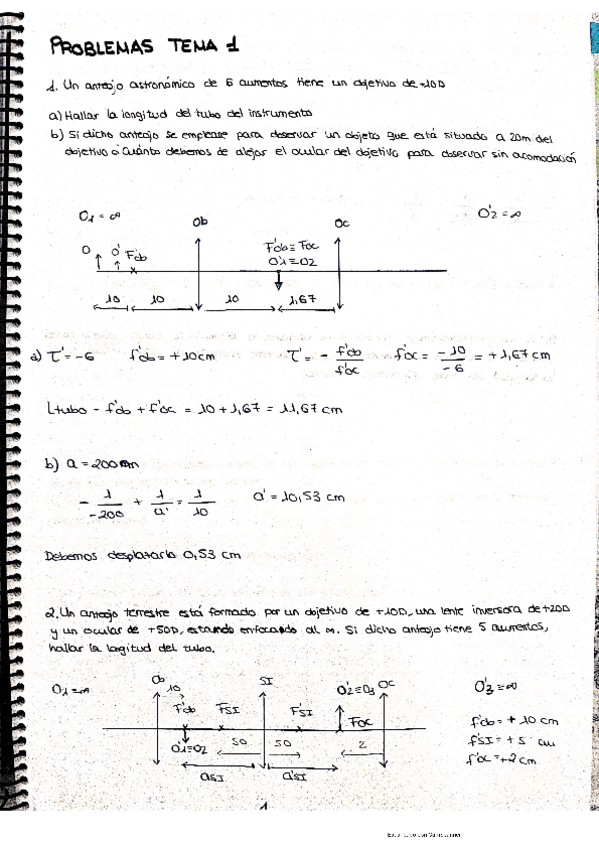 PROBLEMAS TEMA 1
1. Un anteojo astronómico de 6 aumentos tiene un objetivo de +10D
a) Hallar la longitud del tubo del instrumento
b) Si dicho anteojo se emplease para observar un objeto que está situado a 20m del
objetivo ¿Cuánto debemos de alejar el ocular del objetivo para observar sin acomodación
O1 = ∞ Ob Oc O'2 = ∞
O O' F'ob F'ob ≡ Foc
O'1 ≡ O2
10 10 10 1,67
a) Τ' = -6 f'ob = +10cm Τ' = - f'ob / f'oc f'oc = -10 / -6 = +1,67 cm
Ltubo - f'ob + f'oc = 10 + 1,67 = 11,67 cm
b) a = 200
- 1 / -200 + 1 / a' = 1 / 10 a' = 10,53 cm
Debemos desplazarlo 0,53 cm
2. Un anteojo terrestre está formado por un objetivo de +10D, una lente inversora de +20D
y un ocular de +50D, estando enfocando al ∞. Si dicho anteojo tiene 5 aumentos,
hallar la longitud del tubo.
O1 = ∞ Ob SI O'2 ≡ O3 Oc O'3 = ∞
10
F'ob FSI F'SI Foc f'ob = + 10 cm
O'1 ≡ O2 50 50 2 f'SI = + 5 cm
aSI a'SI f'oc = +2 cm
1